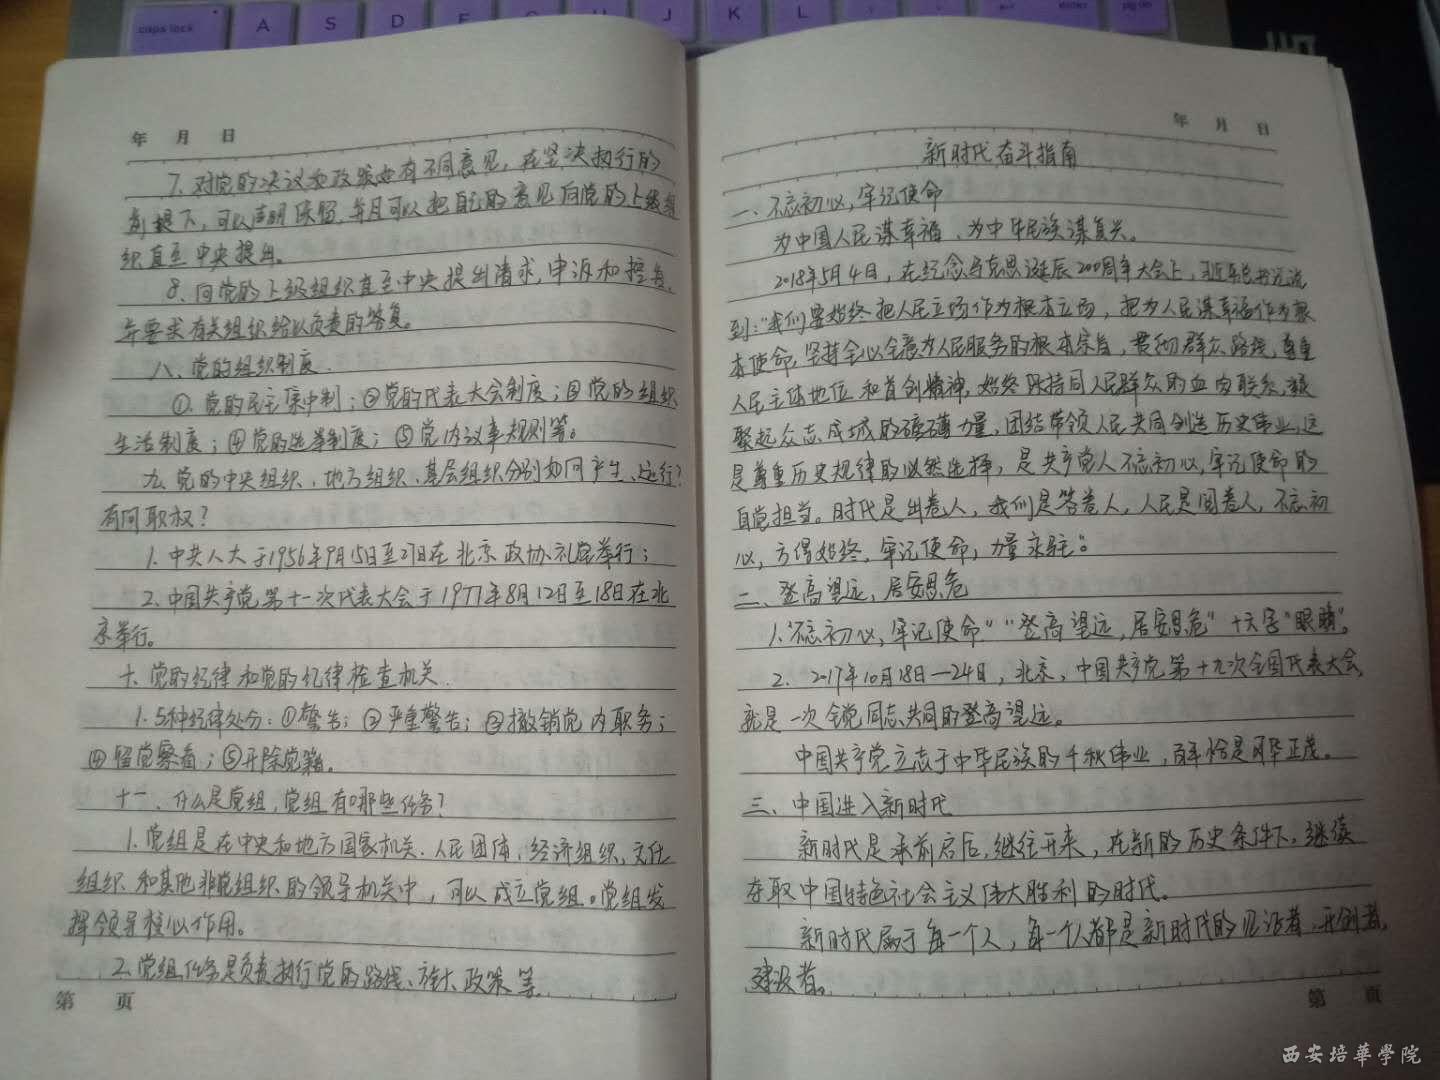 caps lock
A
S
D
F
G
H
J
K
L
enter
pg dn
年 月 日
7. 对党的决议和政策如有不同意见，在坚决执行的
前提下，可以声明保留，并且可以把自己的意见向党的上级组
织直至中央提出。
8、向党的上级组织直至中央提出请求，申诉和控告，
并要求有关组织给以负责的答复。
八、党的组织制度.
①. 党的民主集中制；②党的代表大会制度；③党的组织
生活制度；④党的选举制度；⑤党内议事规则等。
九、党的中央组织、地方组织、基层组织分别如何产生、运行？
有何职权？
1. 中共八大于1956年9月15日至27日在北京政协礼堂举行；
2. 中国共产党第十一次代表大会于1977年8月12日至18日在北
京举行。
十、党的纪律和党的纪律检查机关.
1. 5种纪律处分：①警告；②严重警告；③撤销党内职务；
④留党察看；⑤开除党籍。
十一、什么是党组，党组有哪些任务？
1. 党组是在中央和地方国家机关、人民团体、经济组织、文化
组织和其他非党组织的领导机关中，可以成立党组。党组发
挥领导核心作用。
2. 党组任务是负责执行党的路线、方针、政策等.
第 页
年 月 日
新时代奋斗指南
一、不忘初心，牢记使命
为中国人民谋幸福、为中华民族谋复兴。
2018年5月4日，在纪念马克思诞辰200周年大会上，习近平总书记说
到：“我们要始终把人民立场作为根本立场，把为人民谋幸福作为根
本使命，坚持全心全意为人民服务的根本宗旨，贯彻群众路线，尊重
人民主体地位和首创精神，始终保持同人民群众的血肉联系，凝
聚起众志成城的磅礴力量，团结带领人民共同创造历史伟业，这
是尊重历史规律的必然选择，是共产党人不忘初心，牢记使命的
自觉担当。时代是出卷人，我们是答卷人，人民是阅卷人，不忘初
心，方得始终，牢记使命，力量永驻”。
二、登高望远，居安思危
1.“不忘初心，牢记使命”“登高望远，居安思危”十六字“眼睛”。
2. 2017年10月18日—24日，北京，中国共产党第十九次全国代表大会，
就是一次全党同志共同的登高望远。
中国共产党立志于中华民族的千秋伟业，百年恰是风华正茂。
三、中国进入新时代
新时代是承前启后，继往开来，在新的历史条件下，继续
夺取中国特色社会主义伟大胜利的时代。
新时代属于每一个人，每一个人都是新时代的见证者、开创者、
建设者。
第 页
西安培華學院